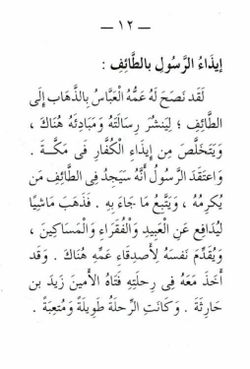 — ١٢ —
إيذاءُ الرَّسُولِ بالطَّائِفِ :
لَقَد نَصَحَ لَهُ عَمُّهُ العَبَّاسُ بِالذَّهَابِ إلَى
الطَّائِفِ ؛ لِيَنشُرَ رِسَالَتَهُ وَمَبَادِئَهُ هُنَاكَ ،
وَيَتَخَلَّصَ مِن إيذَاءِ الْكُفَّارِ فِى مَكَّـةَ .
وَاعتَقَدَ الرَّسُولُ أنَّهُ سَيَجِدُ فِى الطَّائِفِ مَن
يُكرِمُهُ ، وَيَتَّبِعُ مَا جَاءَ بِهِ . فَذَهَبَ مَاشِيًا
لِيُدَافِعَ عَنِ العَبِيدِ وَالْفُقَرَاءِ وَالْمَسَاكِينَ ،
وَيُقَدِّمَ نَفسَهُ لِأَصدِقَاءِ عَمِّهِ هُنَاكَ . وَقَد
أَخَذَ مَعَهُ فِى رِحلَتِهِ فَتَاهُ الأَمِينَ زَيدَ بنَ
حَارِثَةَ . وَكَانَتِ الرِّحلَةُ طَوِيلَةً وَمُتعِبَةً .